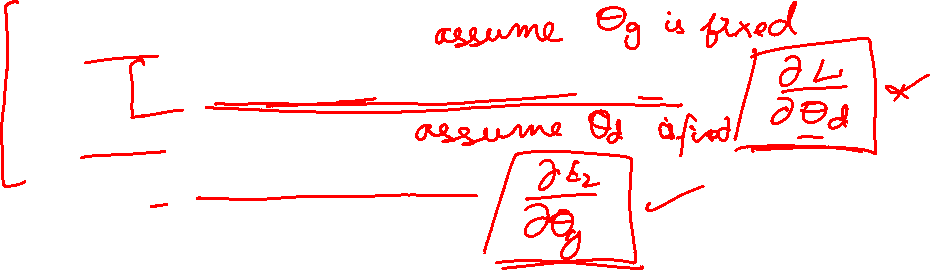 assume θg is fixed
∂L/∂θd
assume θd is fixed
∂L2/∂θg